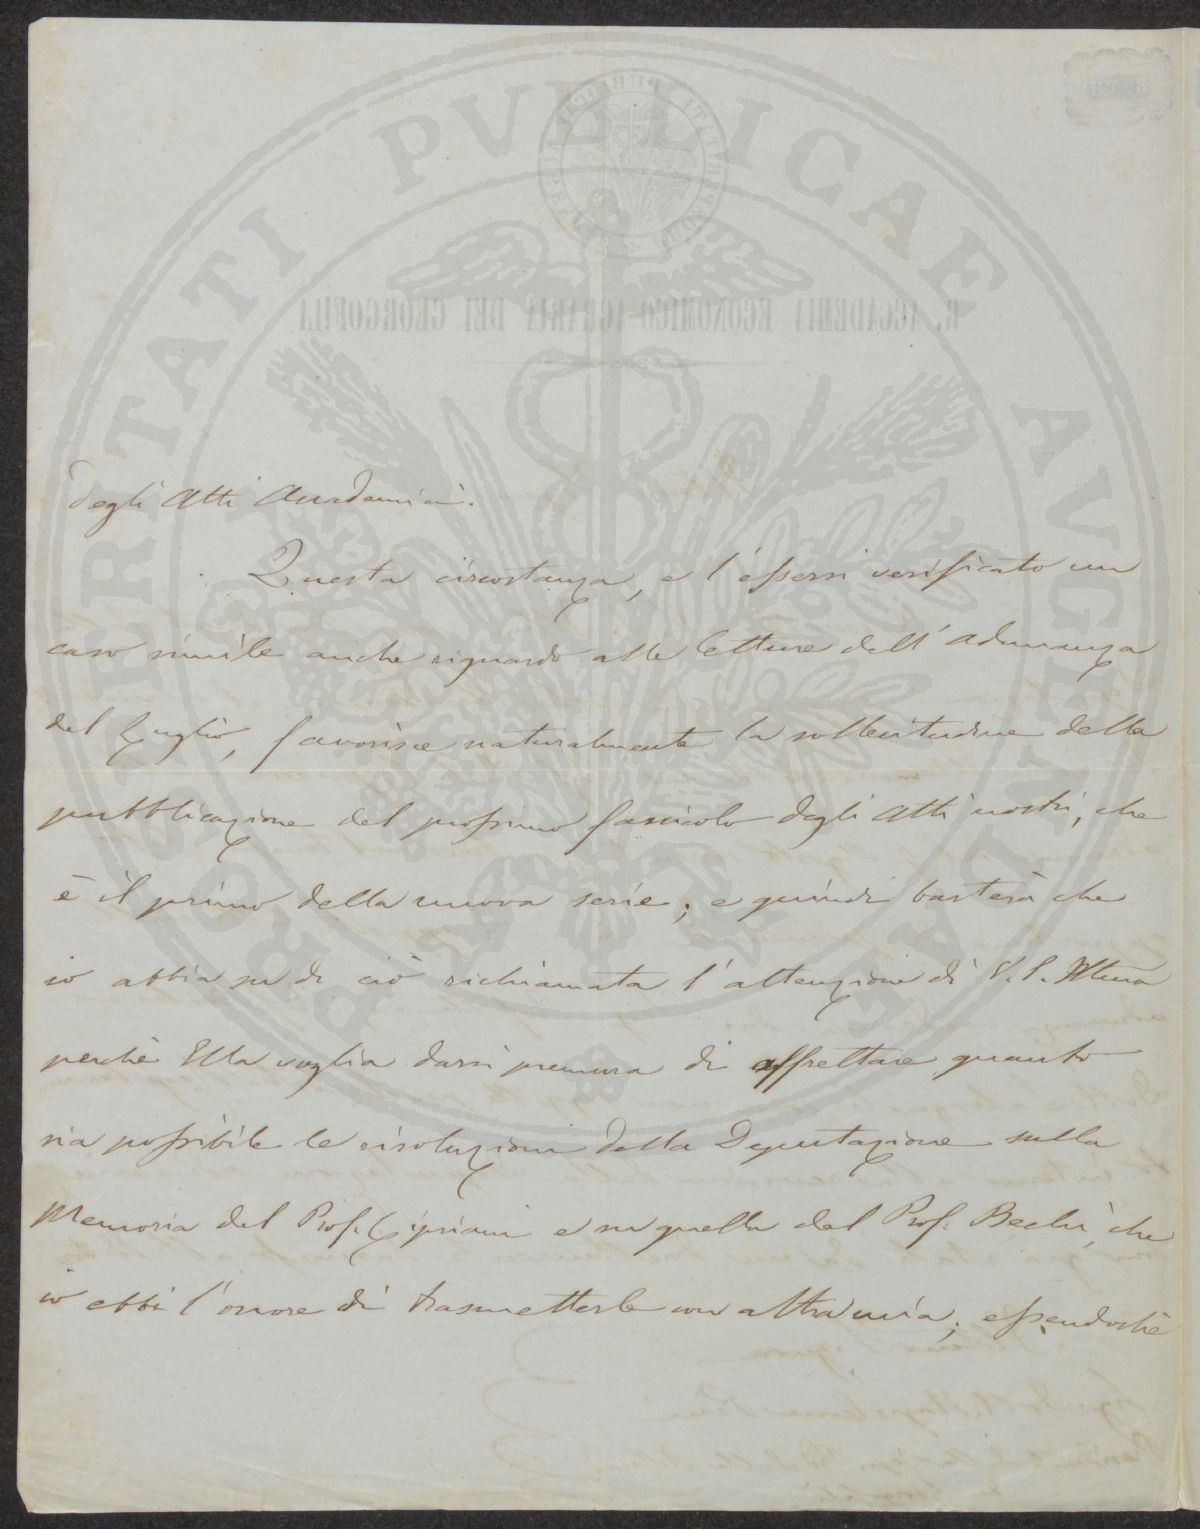 PROSPERITATI PUBLICAE AVGENDAE
R. ACCADEMIA ECONOMICO-AGRARIA DEI GEORGOFILI
degli Atti Accademici.
Questa circostanza, e l'essersi verificato un
caso simile anche riguardo alle letture dell'adunanza
del Luglio, favorisce naturalmente la sollecitudine della
pubblicazione del prossimo fascicolo degli Atti nostri, che
è il primo della nuova serie; e quindi basterà che
io abbia su di ciò richiamata l'attenzione di V. S. Illma
perchè Ella voglia darsi premura di affrettare quanto
sia possibile le risoluzioni della Deputazione sulla
Memoria del Prof. Cipriani e su quella del Prof. Bechi, che
io ebbi l'onore di trasmetterle con altra mia; essendochè